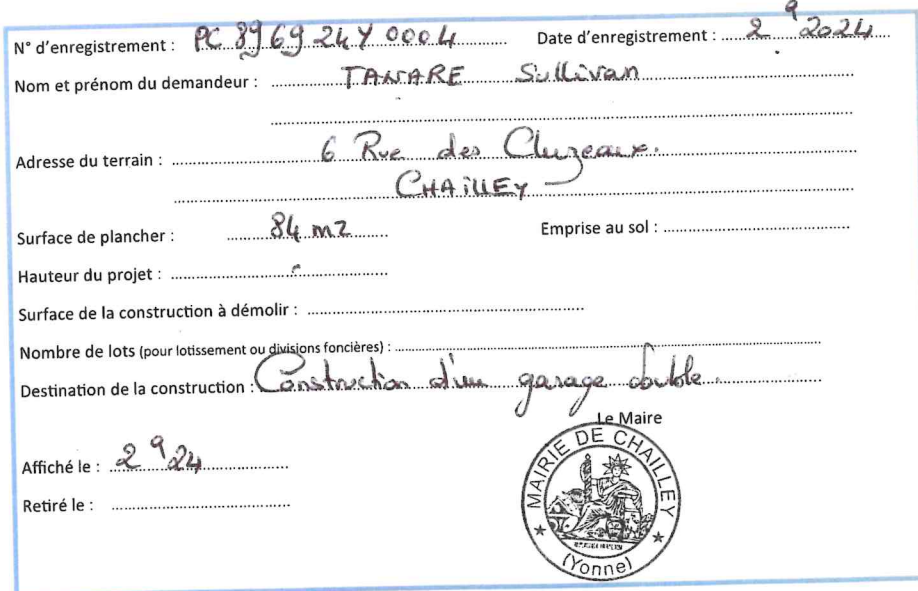 N° d'enregistrement : PC 89 69 24Y 0004 Date d'enregistrement : 2 9 2024
Nom et prénom du demandeur : TANARE Sullivan
Adresse du terrain : 6 Rue des Cluzeaux.
CHAILLEY
Surface de plancher : 84 m2 Emprise au sol :
Hauteur du projet :
Surface de la construction à démolir :
Nombre de lots (pour lotissement ou divisions foncières) :
Destination de la construction : Construction d'un garage double
Le Maire
Affiché le : 2 9 24
Retiré le :
MAIRIE DE CHAILLEY
(Yonne)